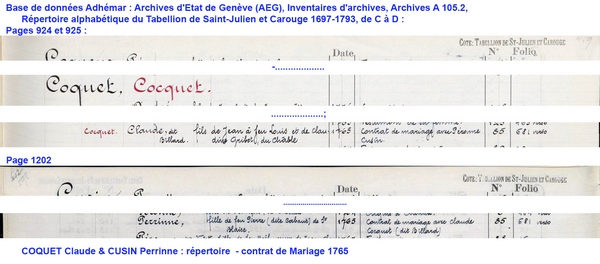 Base de données Adhémar : Archives d'Etat de Genève (AEG), Inventaires d'archives, Archives A 105.2,
Répertoire alphabétique du Tabellion de Saint-Julien et Carouge 1697-1793, de C à D :
Pages 924 et 925 :
COTE: TABELLION DE ST-JULIEN ET CAROUGE
Date N° Folio
Coquet. Cocquet.
Cocquet. Claude, de fils de Jean à feu Louis et de Clau 1765 Contrat de mariage avec Peronne 55 681 vso
Billard. du Chable Cusin
Page 1202
COTE: TABELLION DE ST-JULIEN ET CAROUGE
Date N° Folio
Perrinne, fille de feu Pierre (dite de St Contrat de mariage avec Claude 55 681 vso
Blaise, Cocquet (dit Billard)
COQUET Claude & CUSIN Perrinne : répertoire - contrat de Mariage 1765